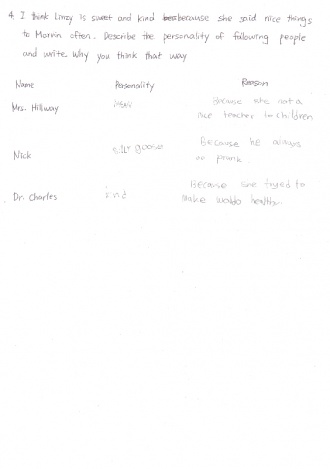 4. I think Linzy is sweet and kind because she said nice things
to Marvin often. Describe the personality of following people
and write why you think that way
Name Personality Reason
Mrs. Hillway Because she not a
nice teacher to children
Nick silly goose Because he always
on prank.
Dr. Charles kind Because she tryed to
make waldo health